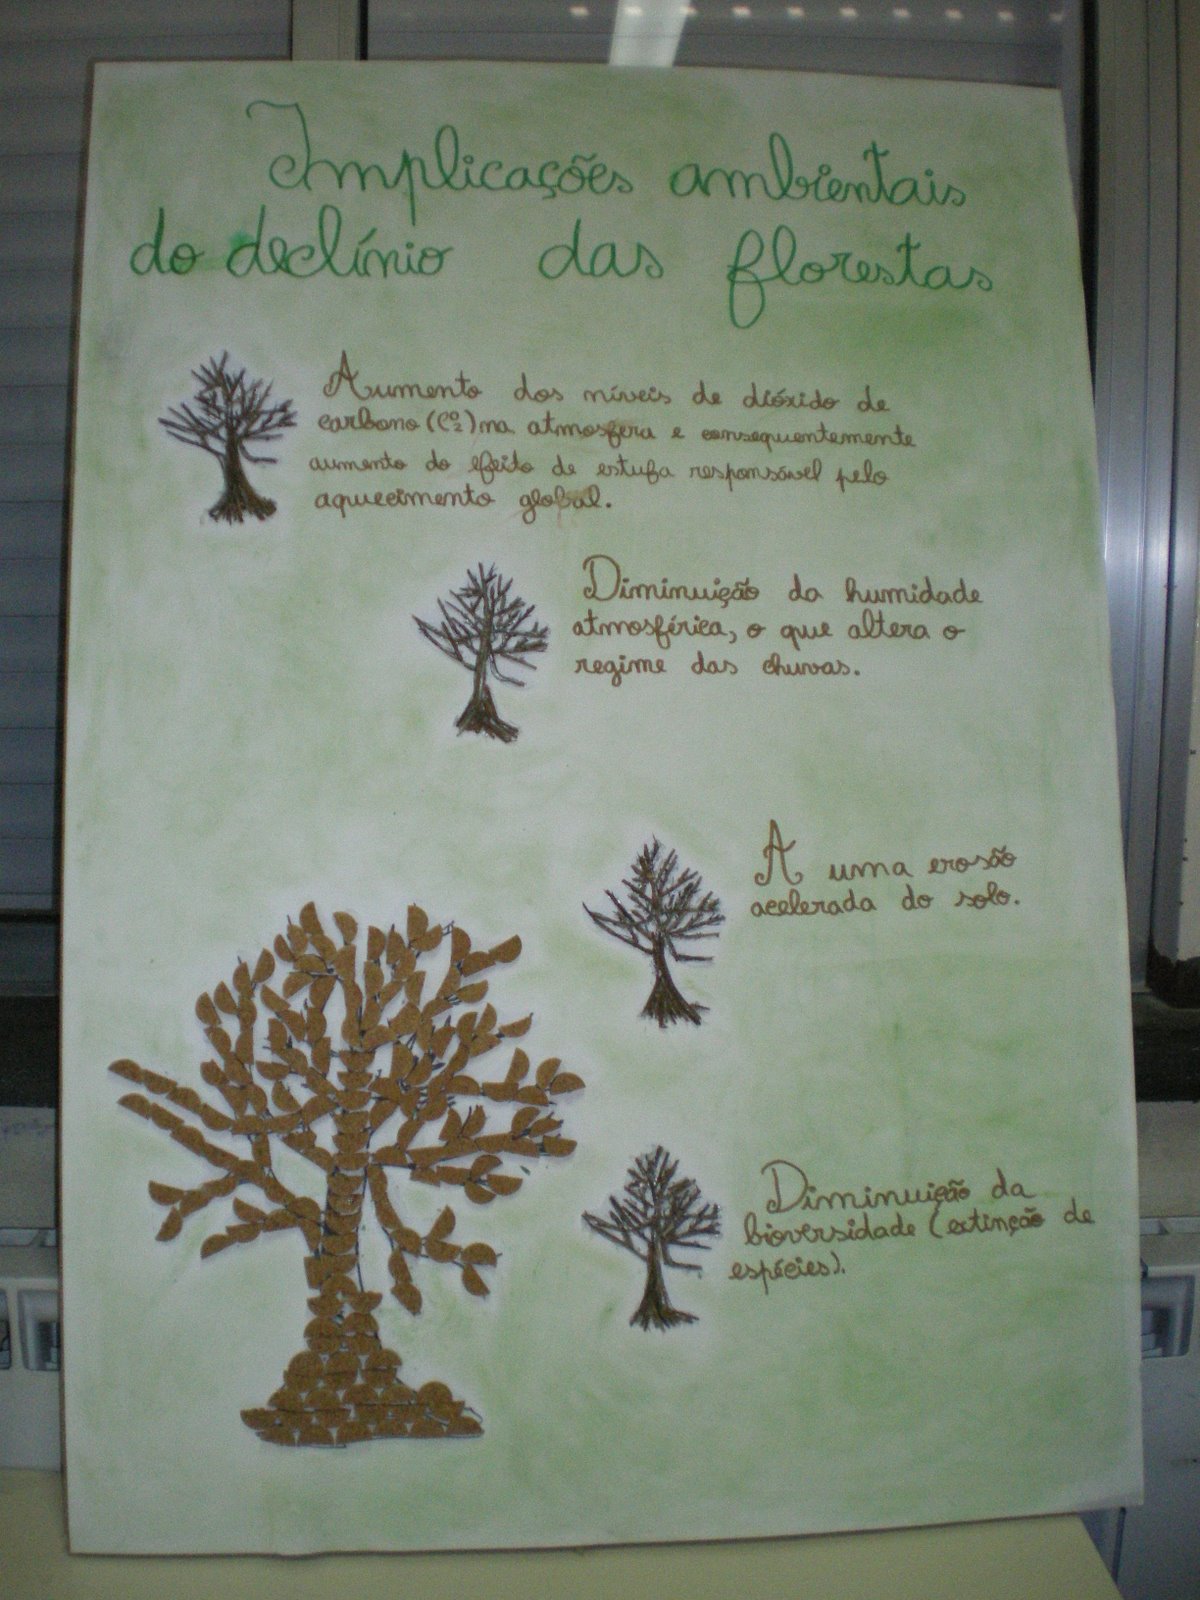 Implicações ambientais
do declínio das florestas
Aumento dos níveis de dióxido de
carbono (CO2) na atmosfera e consequentemente
aumento do efeito de estufa responsável pelo
aquecimento global.
Diminuição da humidade
atmosférica, o que altera o
regime das chuvas.
A uma erosão
acelerada do solo.
Diminuição da
bioversidade (extinção de
espécies).